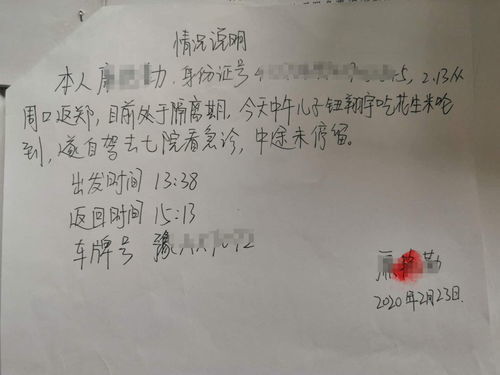 情况说明
本人 勤,身份证号 5, 2.13从
周口返郑,目前处于隔离期,今天中午儿子钮翔宇吃花生米呛
到,遂自驾去七院看急诊,中途未停留。
出发时间 13:38
返回时间 15:13
车牌号 豫
勤
2020年2月23日.